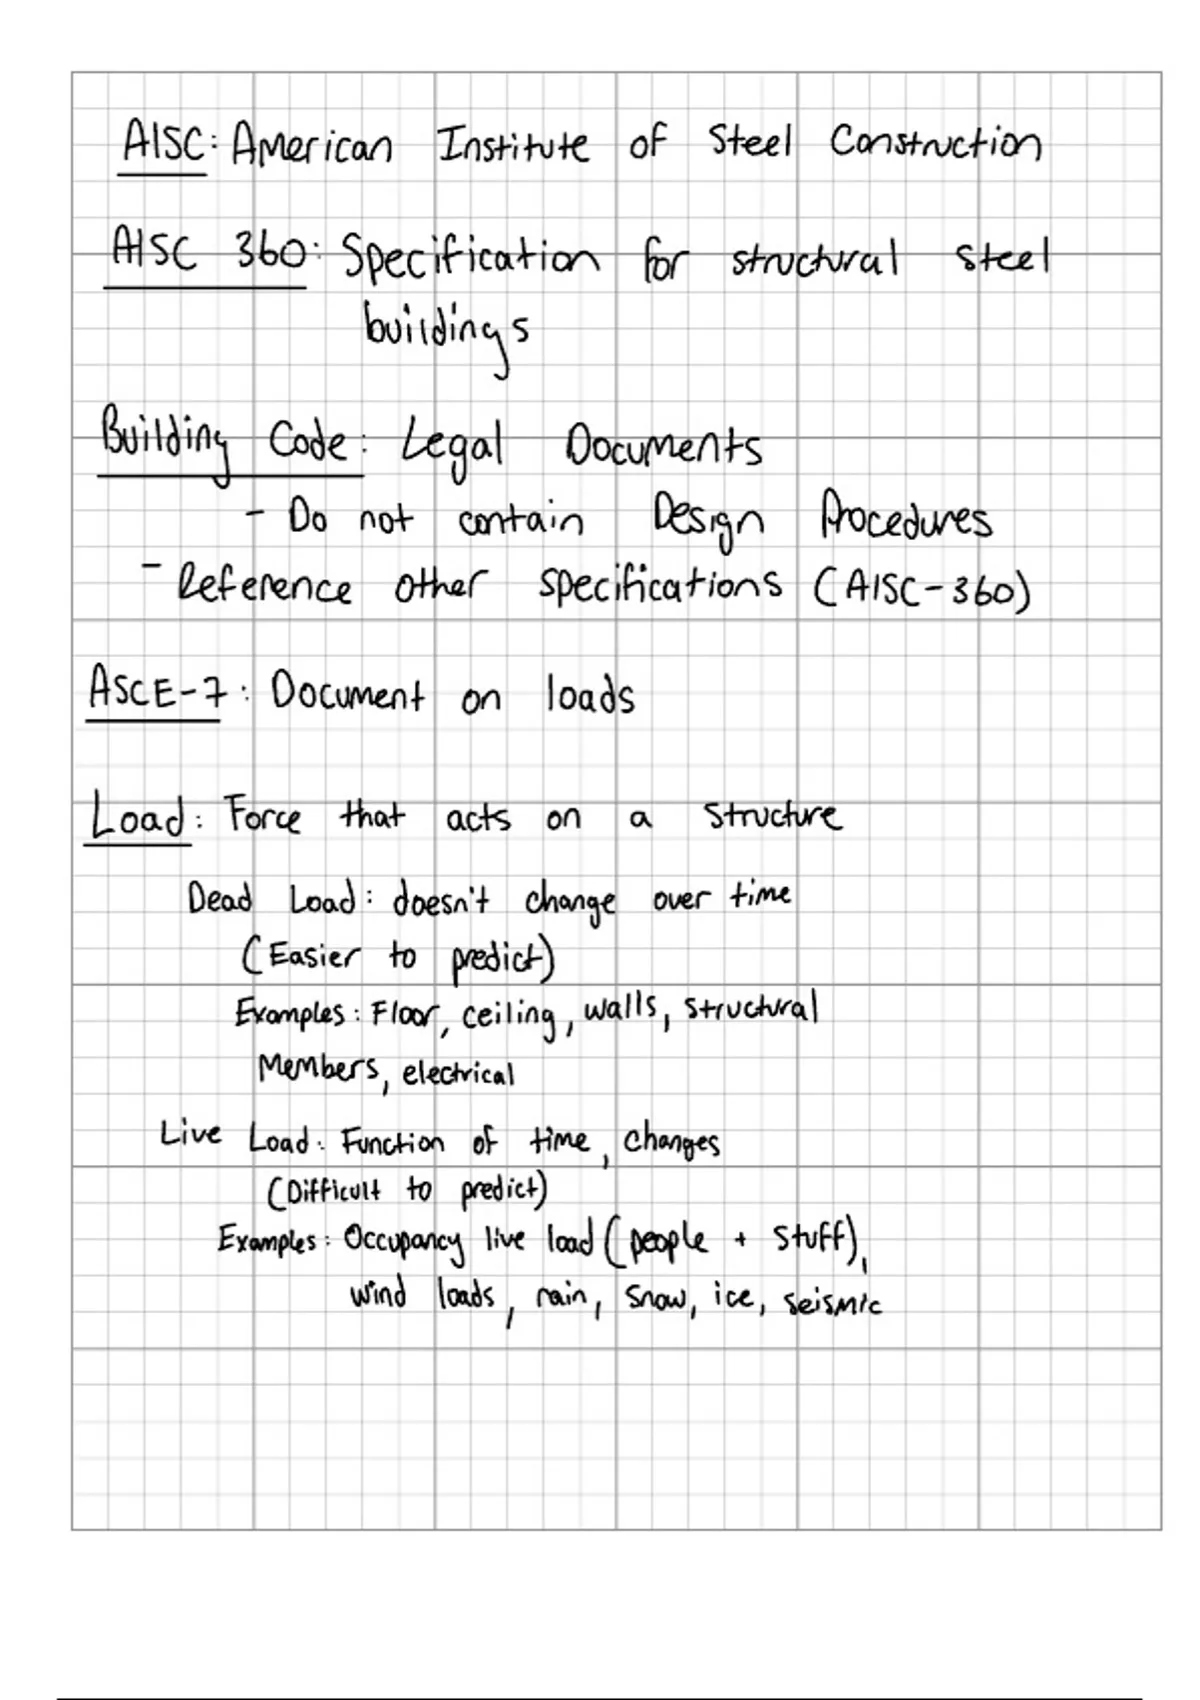 AISC: American Institute of Steel Construction
AISC 360: Specification for structural steel
buildings
Building Code: Legal Documents
- Do not contain Design Procedures
- Reference other specifications (AISC-360)
ASCE-7: Document on loads
Load: Force that acts on a structure
Dead Load: doesn't change over time
(Easier to predict)
Examples: Floor, ceiling, walls, structural
Members, electrical
Live Load: Function of time, changes
(Difficult to predict)
Examples: Occupancy live load (people + stuff),
wind loads, rain, snow, ice, seismic